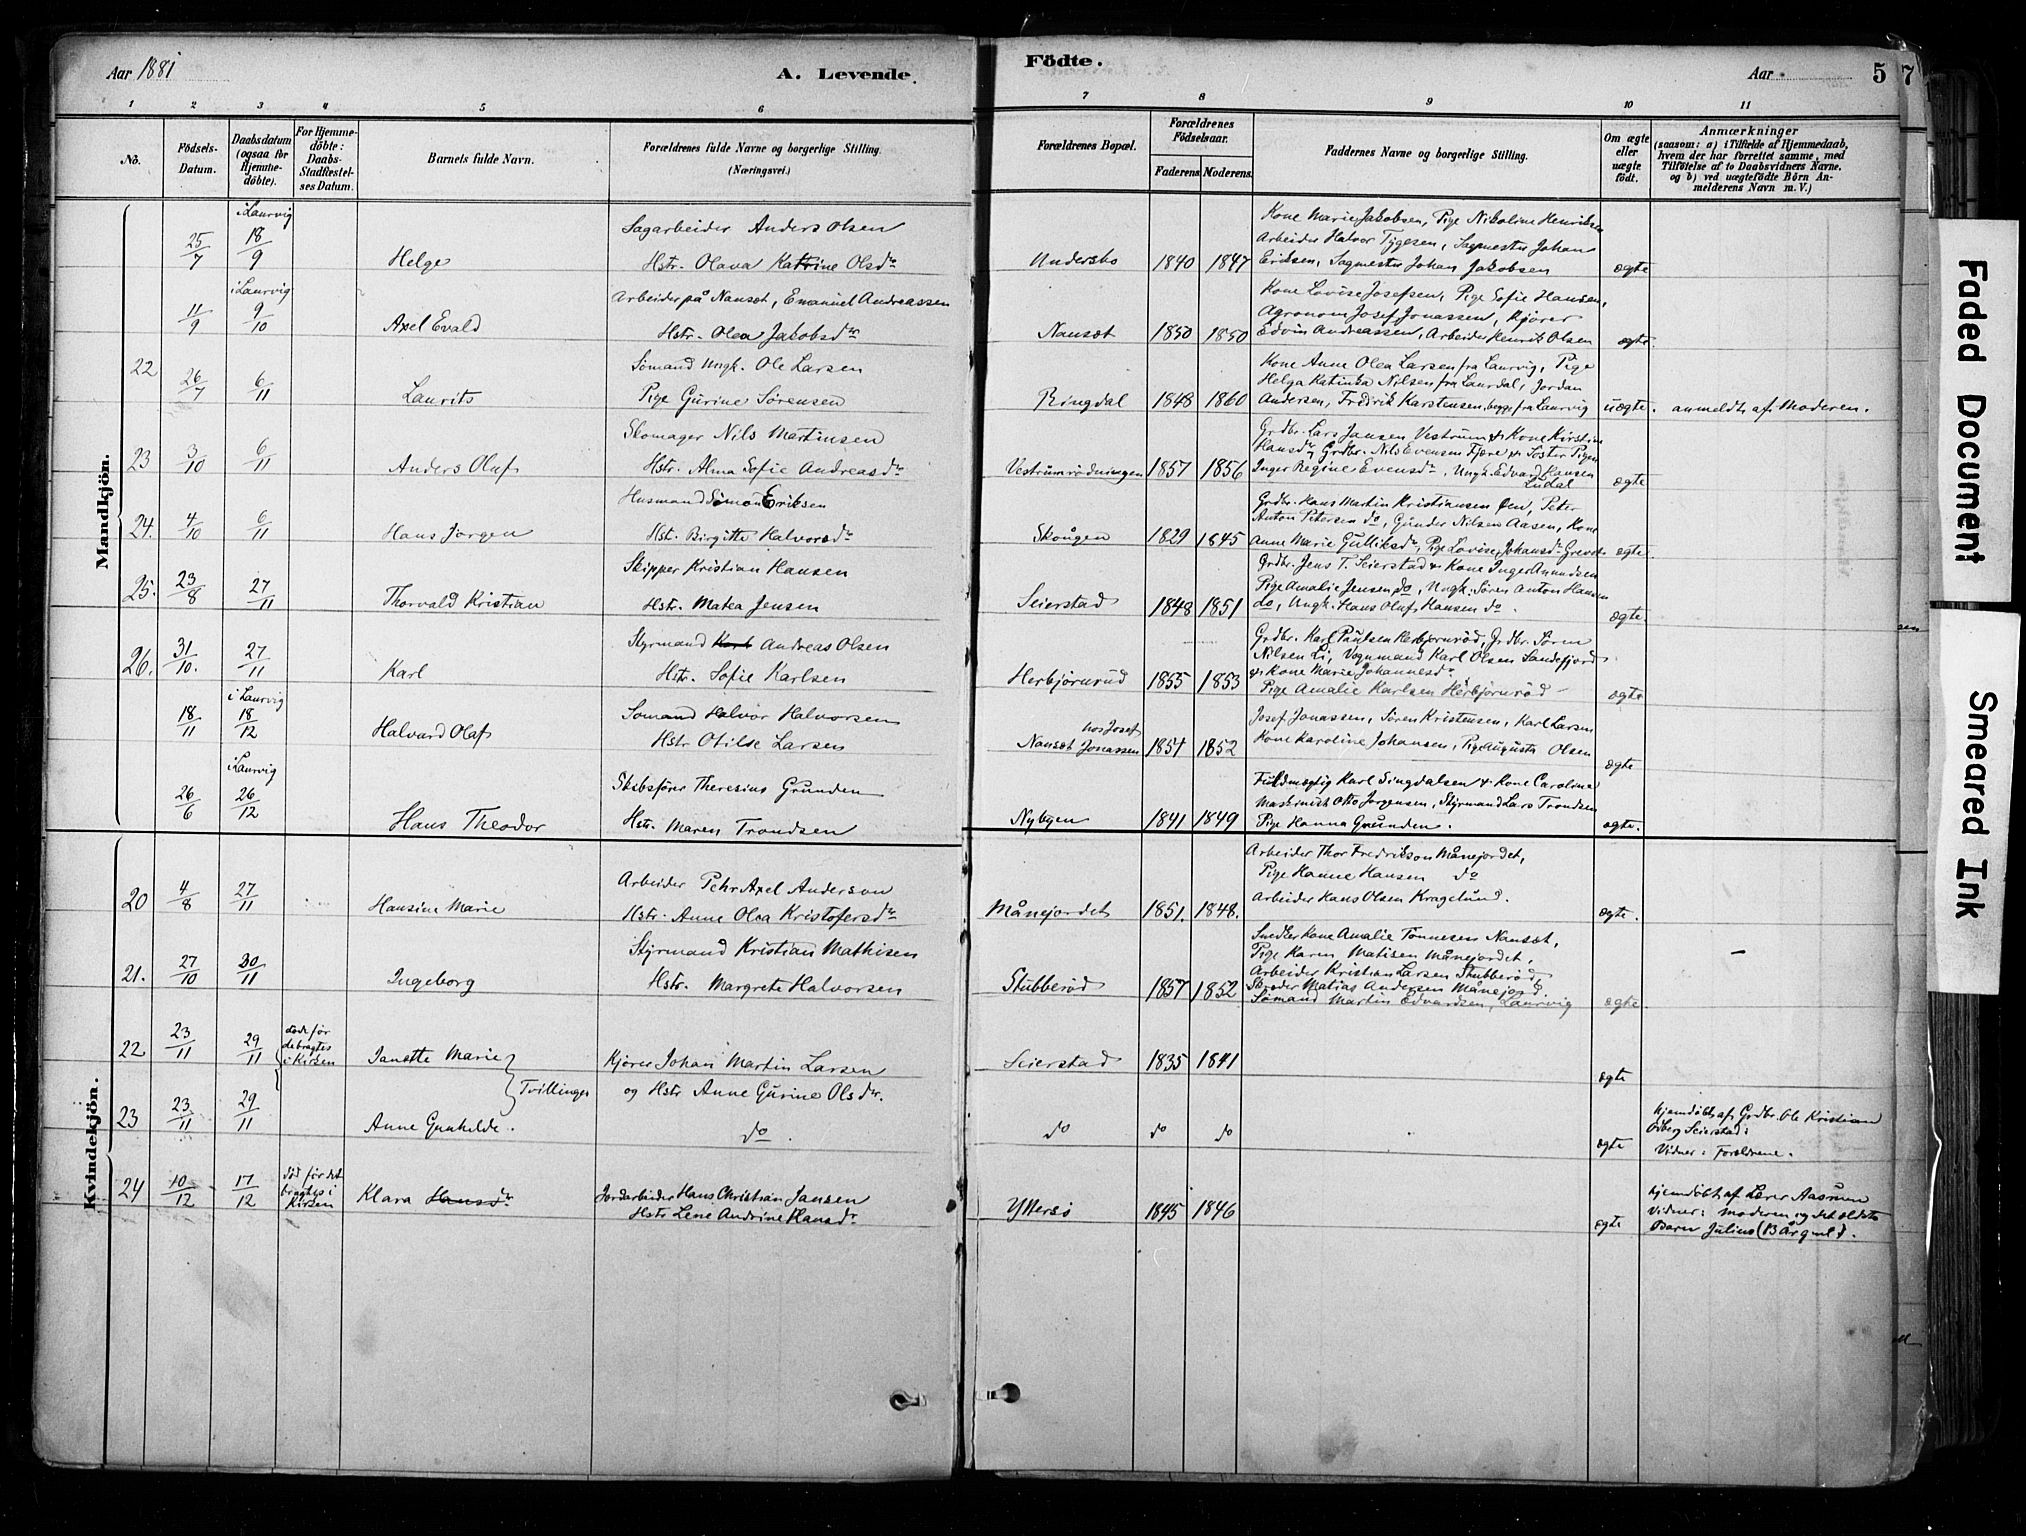 Aar 1881
A. Levende
Födte.
Aar
5
7
1 2 3 4 5 6 7 8 9 10 11
No.
Födsels-Datum.
Daabsdatum (ogsaa for Hjemme-döbte).
For Hjemme-döbte: Daabs-Stadfæstel-ses Datum.
Barnets fulde Navn.
Forældrenes fulde Navne og borgerlige Stilling. (Næringsvei.)
Forældrenes Bopæl.
Forældrenes Födselsaar.
Faderens. Moderens.
Faddernes Navne og borgerlige Stilling.
Om ægte eller uægte födt.
Anmærkninger
(saasom: a) i Tilfælde af Hjemmedaab, hvem der har forrettet samme, med Tilföielse af to Daabsvidners Navne, og b) ved uægtefödte Börn An-melderens Navn m. V.)
Mandkjön.
i Laurvig
25/7 18/9 Helge
Sagarbeider Anders Olsen
Hstr. Olava Katrine Olsdr
Undersbo 1840 1847
Kone Marie Jakobsen, Pige Nikoline Henriksen
Arbeider Halvor Tygesen, Sagmester Johan
Eriksen, Sagmester Johan Jakobsen
ægte
i Laurvig
11/9 9/10 Axel Evald
Arbeider på Nanset, Emanuel Andreassen
Hstr. Olea Jakobsdr
Nanset 1850 1850
Kone Lovise Josefsen, Pige Sofie Hansen,
Agronom Josef Jonassen, Kjører
Edvin Andreassen, Arbeider Henrik Olsen
ægte.
22 26/7 6/11 Laurits
Sømand Ungk. Ole Larsen
Pige Gurine Sørensen
Ringdal 1848 1860
Kone Anne Olea Larsen fra Laurvig, Pige
Helga Katinka Nilsen fra Laurdal, Jordan
Andersen, Fredrik Karstensen, begge fra Laurvig
uægte. anmeldt af Moderen.
23 3/10 6/11 Anders Oluf
Skomager Nils Martinsen
Hstr. Alma Sofie Andreasdr
Vestrumrødningen 1857 1856
Grdbr. Lars Jansen Vestrum & Kone Kirstine
Hansdr, Grdbr. Nils Evensen Fjære & Søster Pigen
Inger Regine Evensdr, Ungk. Edvard Hansen
Ludal
ægte
24. 4/10 6/11 Hans Jørgen
Husmand Simon Eriksen
Hst. Birgitte Halvorsdr
Skougen 1829 1845
Grdbr. Hans Martin Kristiansen Øen, Peter
Anton Petersen do, Gunder Nilsen Aasen, Kone
Anne Marie Gulliksdr, Pige Lovise Johansdr
ægte.
25. 23/8 27/11 Thorvald Kristian
Skipper Kristian Hansen
Hstr. Matea Jensen
Seierstad 1848 1851
Grdbr. Jens T. Seierstad & Kone Inger Amundsen
Pige Amalie Jensen do, Ungk. Søren Anton Hansen
do, Ungk. Hans Oluf Hansen do.
ægte
26. 31/10. 27/11 Karl
Styrmand Karl Andreas Olsen
Hstr. Sofie Karlsen
Herbjørnrud 1855 1853
Grdbr. Karl Paulsen Herbjørnrød, Grdbr. Søren
Nilsen Li, Vognmand Karl Olsen Sandefjord
& Kone Marie Johannesdr
Pige Amalie Karlsen Herbjørnrød
ægte
i Laurvig
18/11 18/12 Halvard Olaf
Sømand Halvor Halvorsen
Hstr Otilde Larsen
hos Josef
Nanset Jonassen 1854 1852
Josef Jonassen, Søren Kristensen, Karl Larsen
Kone Karoline Johansen, Pige Augusta Olsen
ægte
i Laurvig
26/6 26/12 Hans Theodor
Skibsfører Theresius Grunden
Hstr. Maren Trondsen
Nybyen 1841 1849
Fuldmægtig Karl Singdalsen & Kone Caroline
Maskinist Otto Jørgensen, Styrmand Lars Trondsen
Pige Hanna Grunden.
ægte.
Kvindekjön.
20 4/8 27/11 Hansine Marie
Arbeider Pehr Axel Anderson
Hstr. Anne Olea Kristofersdr
Månejordet 1851. 1848.
Arbeider Thor Fredrikson Månejordet,
Pige Hanne Hansen do
Arbeider Hans Olsen Kragelund.
ægte.
21. 27/10 30/11 Ingeborg
Styrmand Kristian Mathisen
Hstr. Margrete Halvorsen
Stubberød 1857 1852
Snedker Kone Amalie Tønnesen Nanset,
Pige Karen Matisen Månejordet,
Arbeider Kristian Larsen Stubberød,
Skræder Matias Andersen Månejord
Sømand Martin Edvardsen, Laurvig
ægte
22 23/11 29/11 døde før de bragtes i Kirken Janette Marie
Kjører Johan Martin Larsen
og Hstr Anne Gurine Olsdr.
Tvillinger
Seierstad 1835 1841
ægte
23 23/11 29/11 Anne Gunhilde.
do.
do do do
ægte
hjemdøbt af Grdbr. Ole Kristian
Odberg Seierstad:
Vidner: Forældrene.
24 10/12 17/12 død før det bragtes i Kirken Klara Hansdr
Jordarbeider Hans Christian Jansen
Hstr Lene Andrine Hansdr
Yttersø 1845 1846
ægte
hjemdøbt af Lærer Aasmun
Vidner: Moderen og det ældste
Barn Julius (13 År gml).
Faded Document
Smeared Ink